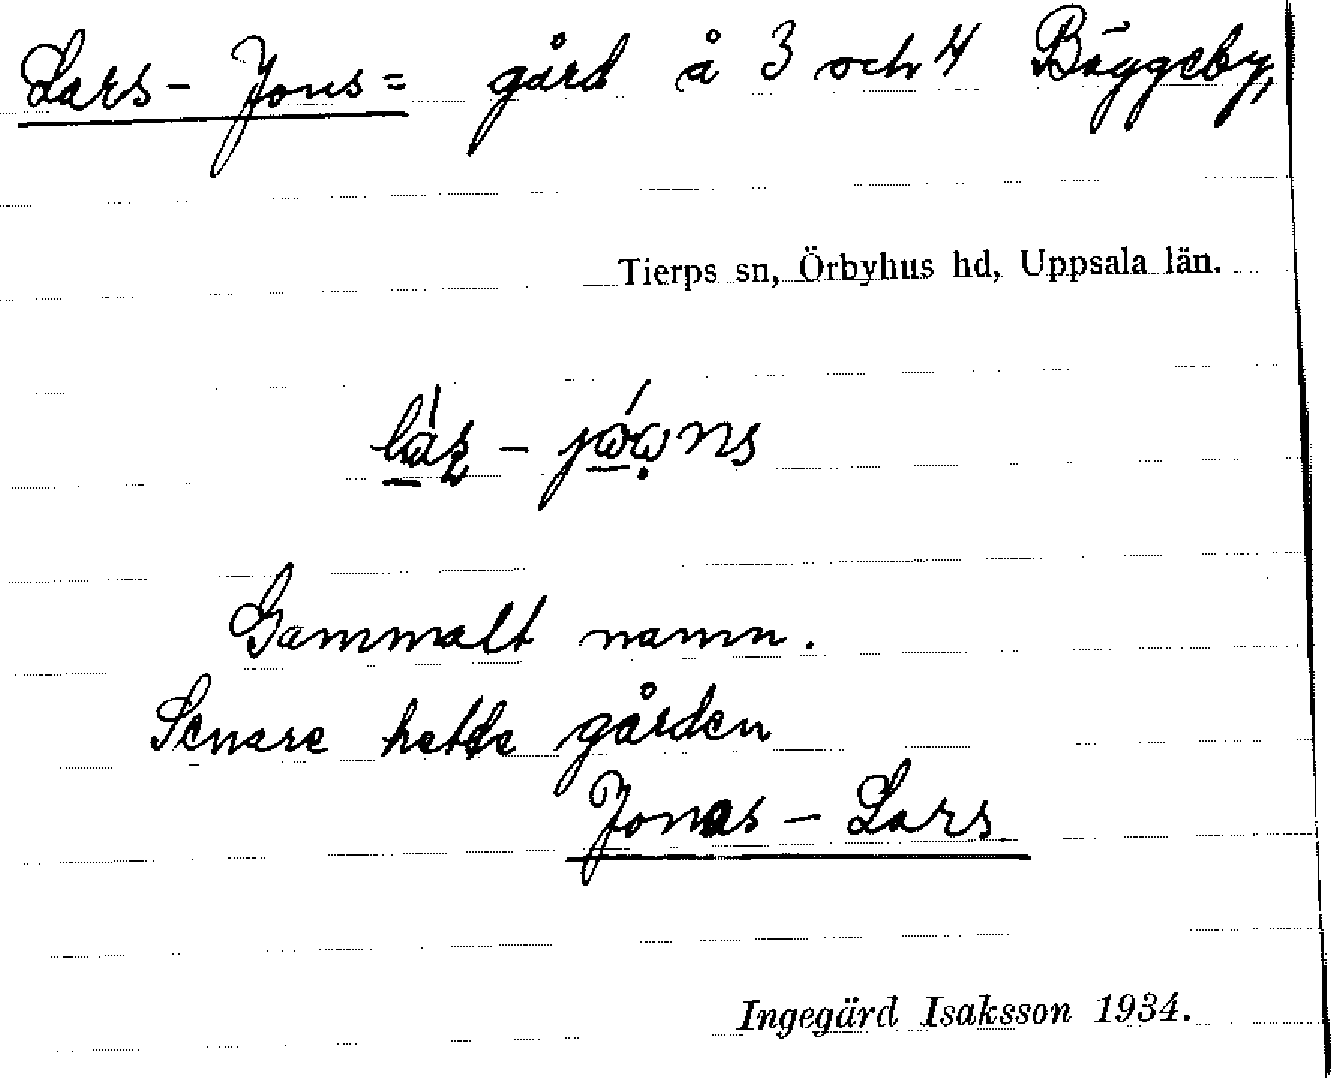 Lars-Jons= gård å 3 och 4 Bäggeby,
Tierps sn, Örbyhus hd, Uppsala län.
Gammalt namn.
Senare hette gården
Jonas-Lars
Ingegärd Isaksson 1934.